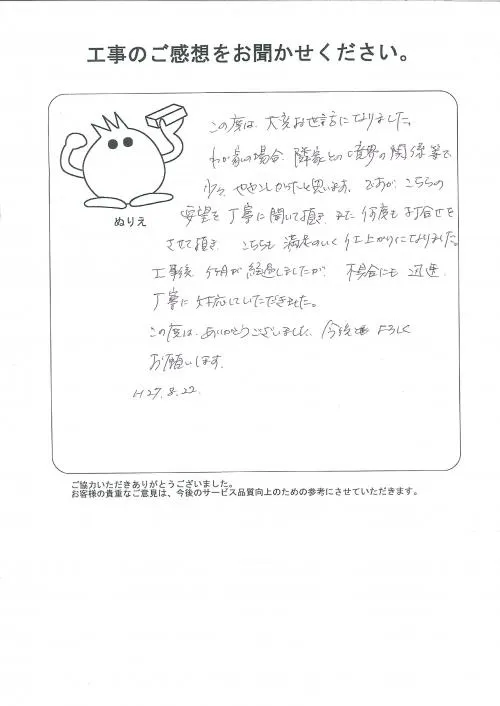 工事のご感想をお聞かせください。
ぬりえ
この度は、大変お世話になりました。
わが家の場合、隣家との境界の関係等で
少々ややこしかったと思います。ですが、こちらの
要望を丁寧に聞いて頂き、また何度も打合せを
させて頂き、こちらも満足のいく仕上がりになりました。
工事後、ヶ月が経過しましたが、不具合にも迅速
丁寧に対応していただきました。
この度は、ありがとうございました。今後も よろしく
お願いします。
H27.8.22.
ご協力いただきありがとうございました。
お客様の貴重なご意見は、今後のサービス品質向上のための参考にさせていただきます。